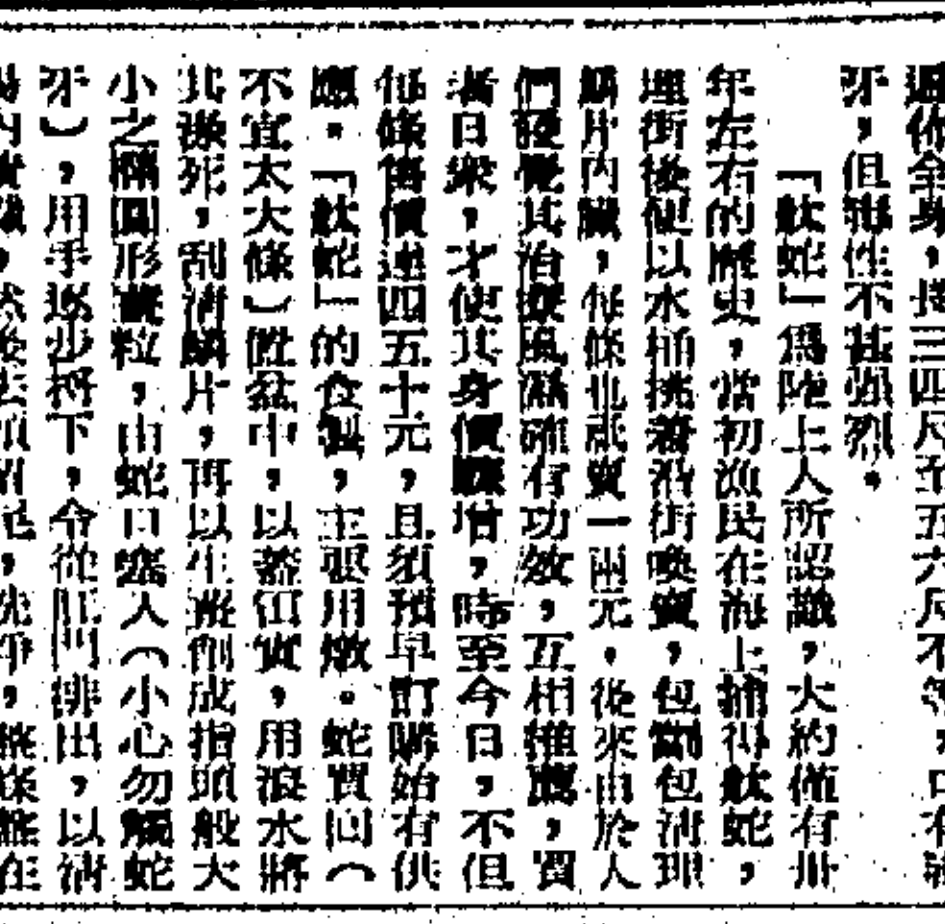 遍佈全身，長三四尺至五六尺不等，口有
牙，但毒性不甚強烈。
「魰蛇」爲陸上人所認識，大約僅有卅
年左右的歷史，當初漁民在海上捕得魰蛇，
埋街後便以水桶挑着沿街喚賣，包劏包清理
鱗片內臟，每條也祇賣一兩元。後來由於人
們發覺其治療風濕確有功效，互相推薦，買
者日衆，才使其身價驟增，時至今日，不但
每條售價達四五十元，且須預早訂購始有供
應。「魰蛇」的食製，主要用燉。蛇買回（
不宜太大條）置盆中，以蓋冚實，用滾水將
其淥死，刮清鱗片，再以生薑削成指頭般大
小之橢圓形薑粒，由蛇口塞入（小心勿觸蛇
牙），用手逐少捋下，令從肛門排出，以清
內，然後去頭尾，洗淨，條在